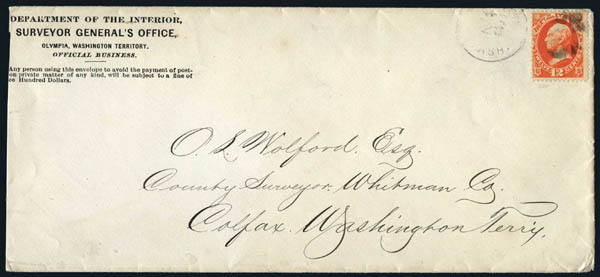 DEPARTMENT OF THE INTERIOR,
SURVEYOR GENERAL'S OFFICE,
OLYMPIA, WASHINGTON TERRITORY.
OFFICIAL BUSINESS.
Any person using this envelope to avoid the payment of post-
on private matter of any kind, will be subject to a fine of
ee Hundred Dollars.
WASH.
12
O. L. Wolford. Esq.
County Surveyor. Whitman Co.
Colfax. Washington Terr'y.